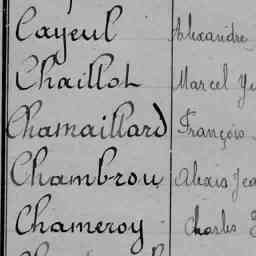 Cayeul Alexandre
Chaillot Marcel
Chamaillard François
Chambrou Alexis
Chameroy Charles